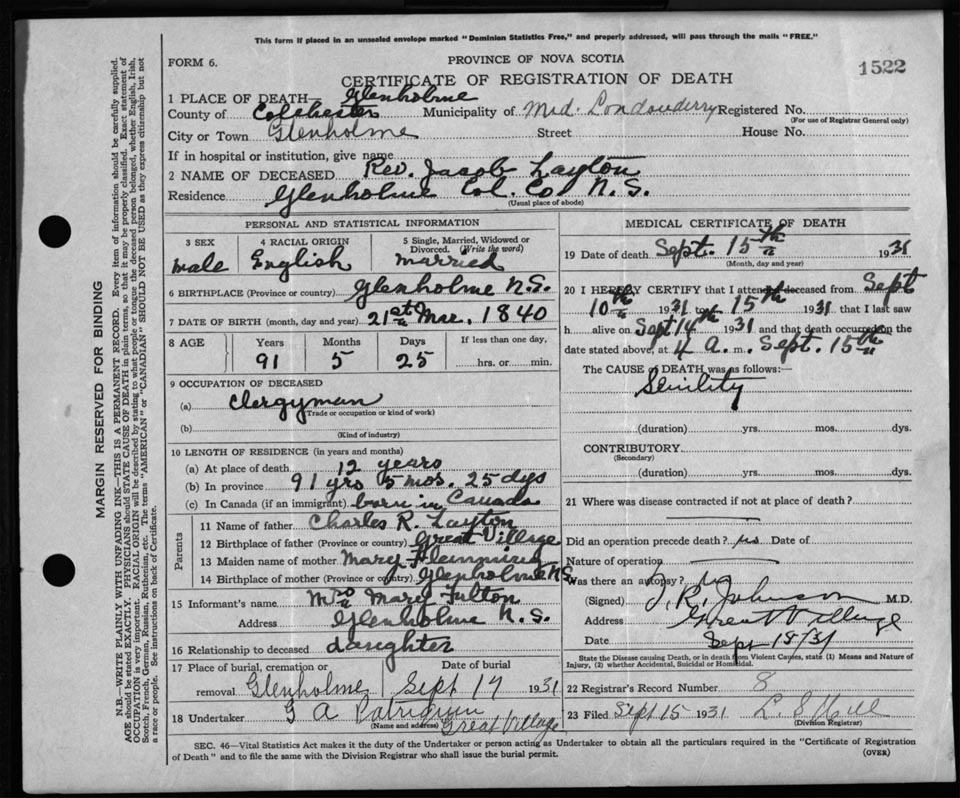 This form if placed in an unsealed envelope marked "Dominion Statistics Free," and properly addressed, will pass through the mails "FREE."
FORM 6.
PROVINCE OF NOVA SCOTIA
1522
CERTIFICATE OF REGISTRATION OF DEATH
1 PLACE OF DEATH— Glenholme
County of Colchester Municipality of Mid. Londonderry Registered No.
(For use of Registrar General only)
City or Town Glenholme Street House No.
If in hospital or institution, give name
2 NAME OF DECEASED Rev. Jacob Layton
Residence Glenholme Col. Co. N.S.
(Usual place of abode)
PERSONAL AND STATISTICAL INFORMATION
3 SEX 4 RACIAL ORIGIN 5 Single, Married, Widowed or Divorced. (Write the word)
male English married
6 BIRTHPLACE (Province or country) Glenholme N.S.
7 DATE OF BIRTH (month, day and year) 21st 1840
8 AGE Years Months Days If less than one day,
91 5 25 hrs. or min.
9 OCCUPATION OF DECEASED
(a) Clergyman
(Trade or occupation or kind of work)
(b)
(Kind of industry)
10 LENGTH OF RESIDENCE (in years and months)
(a) At place of death 12 years
(b) In province 91 yrs 5 mos. 25 dys
(c) In Canada (if an immigrant) born in Canada
Parents
11 Name of father Charles R. Layton
12 Birthplace of father (Province or country) Great Village
13 Maiden name of mother Mary Flemming
14 Birthplace of mother (Province or country) Glenholme N.S.
15 Informant's name Mrs Mary Fulton
Address Glenholme N.S.
16 Relationship to deceased daughter
17 Place of burial, cremation or Date of burial
removal Glenholme Sept 17 1931
18 Undertaker G A Patriquin
(Name and address) Great Village
MEDICAL CERTIFICATE OF DEATH
19 Date of death Sept. 15th 1931
(Month, day and year)
20 I HEREBY CERTIFY that I attended deceased from Sept
10th 1931 to 15th 1931 that I last saw
h alive on Sept 14th 1931 and that death occurred on the
date stated above, at 4 A. m. Sept. 15th
The CAUSE of DEATH was as follows:—
Senility
(duration) yrs. mos. dys.
CONTRIBUTORY
(Secondary)
(duration) yrs. mos. dys.
21 Where was disease contracted if not at place of death?
Did an operation precede death? no Date of
Nature of operation
Was there an autopsy? no
(Signed) J. R. Johnson M.D.
Address Great Village
Date Sept 15/31
State the Disease causing Death, or in death from Violent Causes, state (1) Means and Nature of
Injury, (2) whether Accidental, Suicidal or Homicidal.
22 Registrar's Record Number 8
23 Filed Sept 15 1931 L. S Hill
(Division Registrar)
SEC. 46—Vital Statistics Act makes it the duty of the Undertaker or person acting as Undertaker to obtain all the particulars required in the "Certificate of Registration
of Death" and to file the same with the Division Registrar who shall issue the burial permit.
(OVER)
MARGIN RESERVED FOR BINDING
N.B.—WRITE PLAINLY WITH UNFADING INK—THIS IS A PERMANENT RECORD. Every item of information should be carefully supplied.
AGE should be stated EXACTLY. PHYSICIANS should STATE CAUSE OF DEATH in plain terms, so that it may be properly classified. Exact statement of
OCCUPATION is very important. RACIAL ORIGIN will be described by stating to what people or tongue the deceased person belonged, whether English, Irish,
Scotch, French, German, Russian, Ruthenian, etc. The terms "AMERICAN" or "CANADIAN" SHOULD NOT BE USED as they express citizenship but not
a race or people. See instructions on back of Certificate.